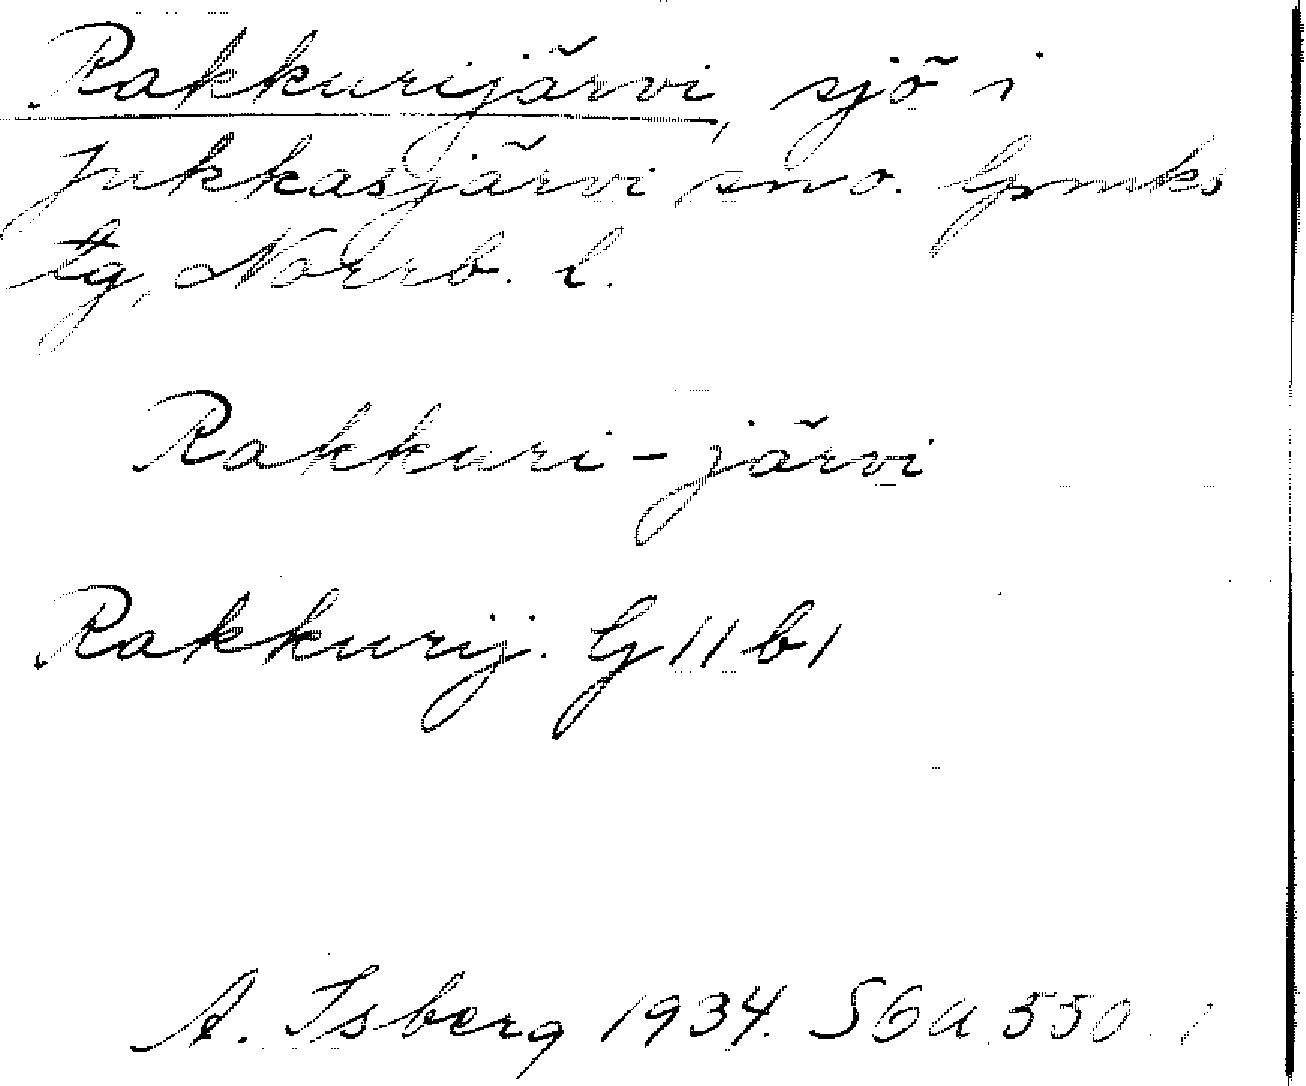 Rakkurijärvi, sjö i
Jukkasjärvi sn o. Gmsks
tg, Norrb. l.
Rakkuri-järvi
Rakkurij. G 11 b 1
A. Isberg 1934. SGU 550.